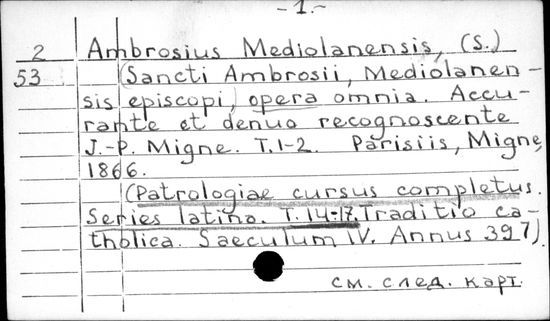 - 1. -
2 Ambrosius Mediolanensis, (S.)
53 (Sancti Ambrosii, Mediolanen-
sis episcopi, opera omnia. Accu-
rante et denuo recognoscente
J.-P. Migne. T. 1-2. Parisiis, Migne,
1866.
(Patrologiae cursus completus.
Series latina. T. 14-17. Traditio ca-
tholica. Saeculum IV. Annus 397).
см. след. карт.